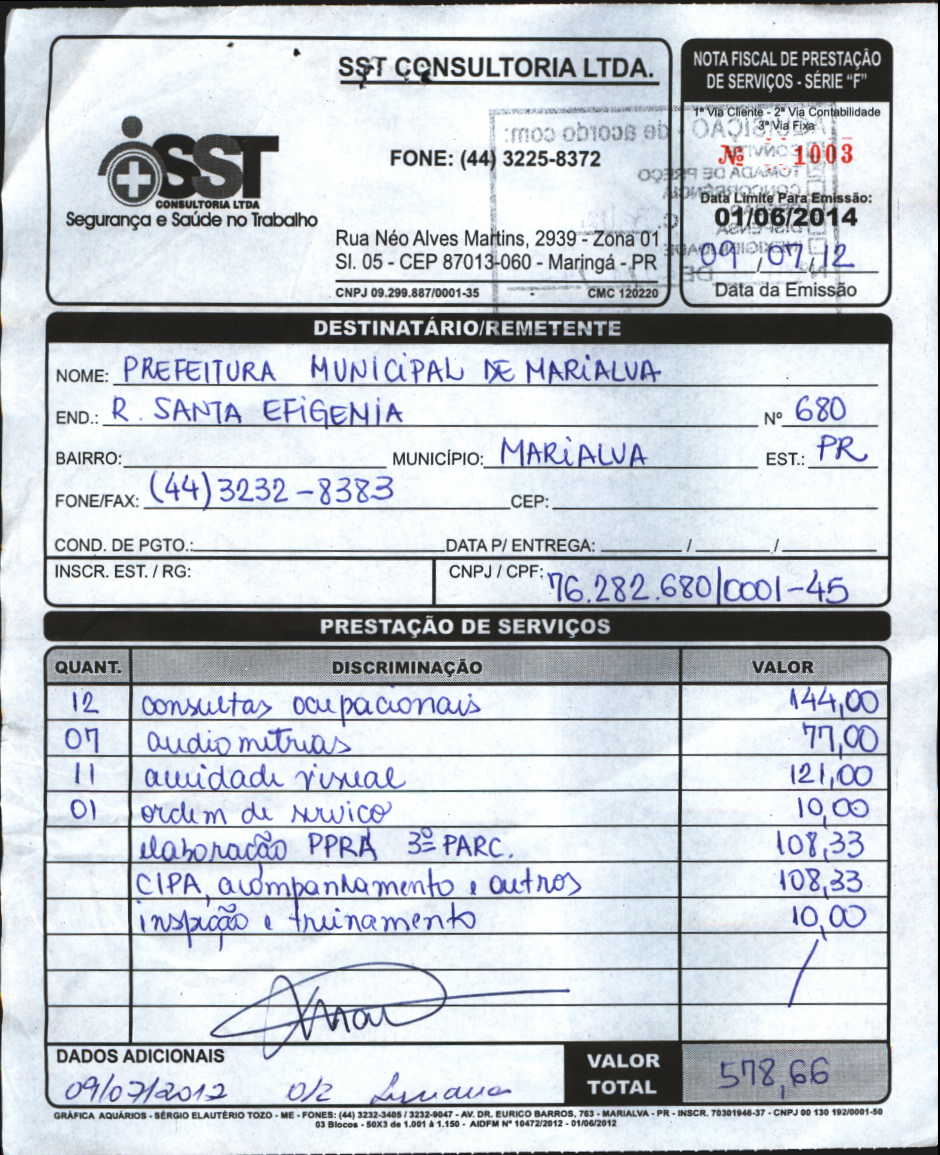 SST CONSULTORIA LTDA.
SST
CONSULTORIA LTDA
Segurança e Saúde no Trabalho
FONE: (44) 3225-8372
Rua Néo Alves Martins, 2939 - Zona 01
Sl. 05 - CEP 87013-060 - Maringá - PR
CNPJ 09.299.887/0001-35 CMC 120220
NOTA FISCAL DE PRESTAÇÃO
DE SERVIÇOS - SÉRIE "F"
1ª Via Cliente - 2ª Via Contabilidade
3ª Via Fixa
Nº 1003
Data Limite Para Emissão:
01/06/2014
09 / 07 / 12
Data da Emissão
DESTINATÁRIO/REMETENTE
NOME: PREFEITURA MUNICIPAL DE MARIALVA
END.: R. SANTA EFIGENIA Nº 680
BAIRRO: MUNICÍPIO: MARIALVA EST.: PR
FONE/FAX: (44) 3232-8383 CEP:
COND. DE PGTO.: DATA P/ ENTREGA: / /
INSCR. EST. / RG: CNPJ / CPF: 76.282.680/0001-45
PRESTAÇÃO DE SERVIÇOS
QUANT. DISCRIMINAÇÃO VALOR
12 consultas ocupacionais 144,00
07 audiometrias 77,00
11 acuidade visual 121,00
01 ordem de serviço 10,00
elaboração PPRA 3ª PARC. 108,33
CIPA, acompanhamento e outros 108,33
inspeção e treinamento 10,00
DADOS ADICIONAIS
09/07/2012
VALOR TOTAL 578,66
GRÁFICA AQUÁRIOS - SÉRGIO ELAUTÉRIO TOZO - ME - FONES: (44) 3232-3405 / 3232-9047 - AV. DR. EURICO BARROS, 763 - MARIALVA - PR - INSCR. 70301946-37 - CNPJ 00 130 192/0001-50
03 Blocos - 50X3 de 1.001 à 1.150 - AIDFM Nº 10472/2012 - 01/06/2012